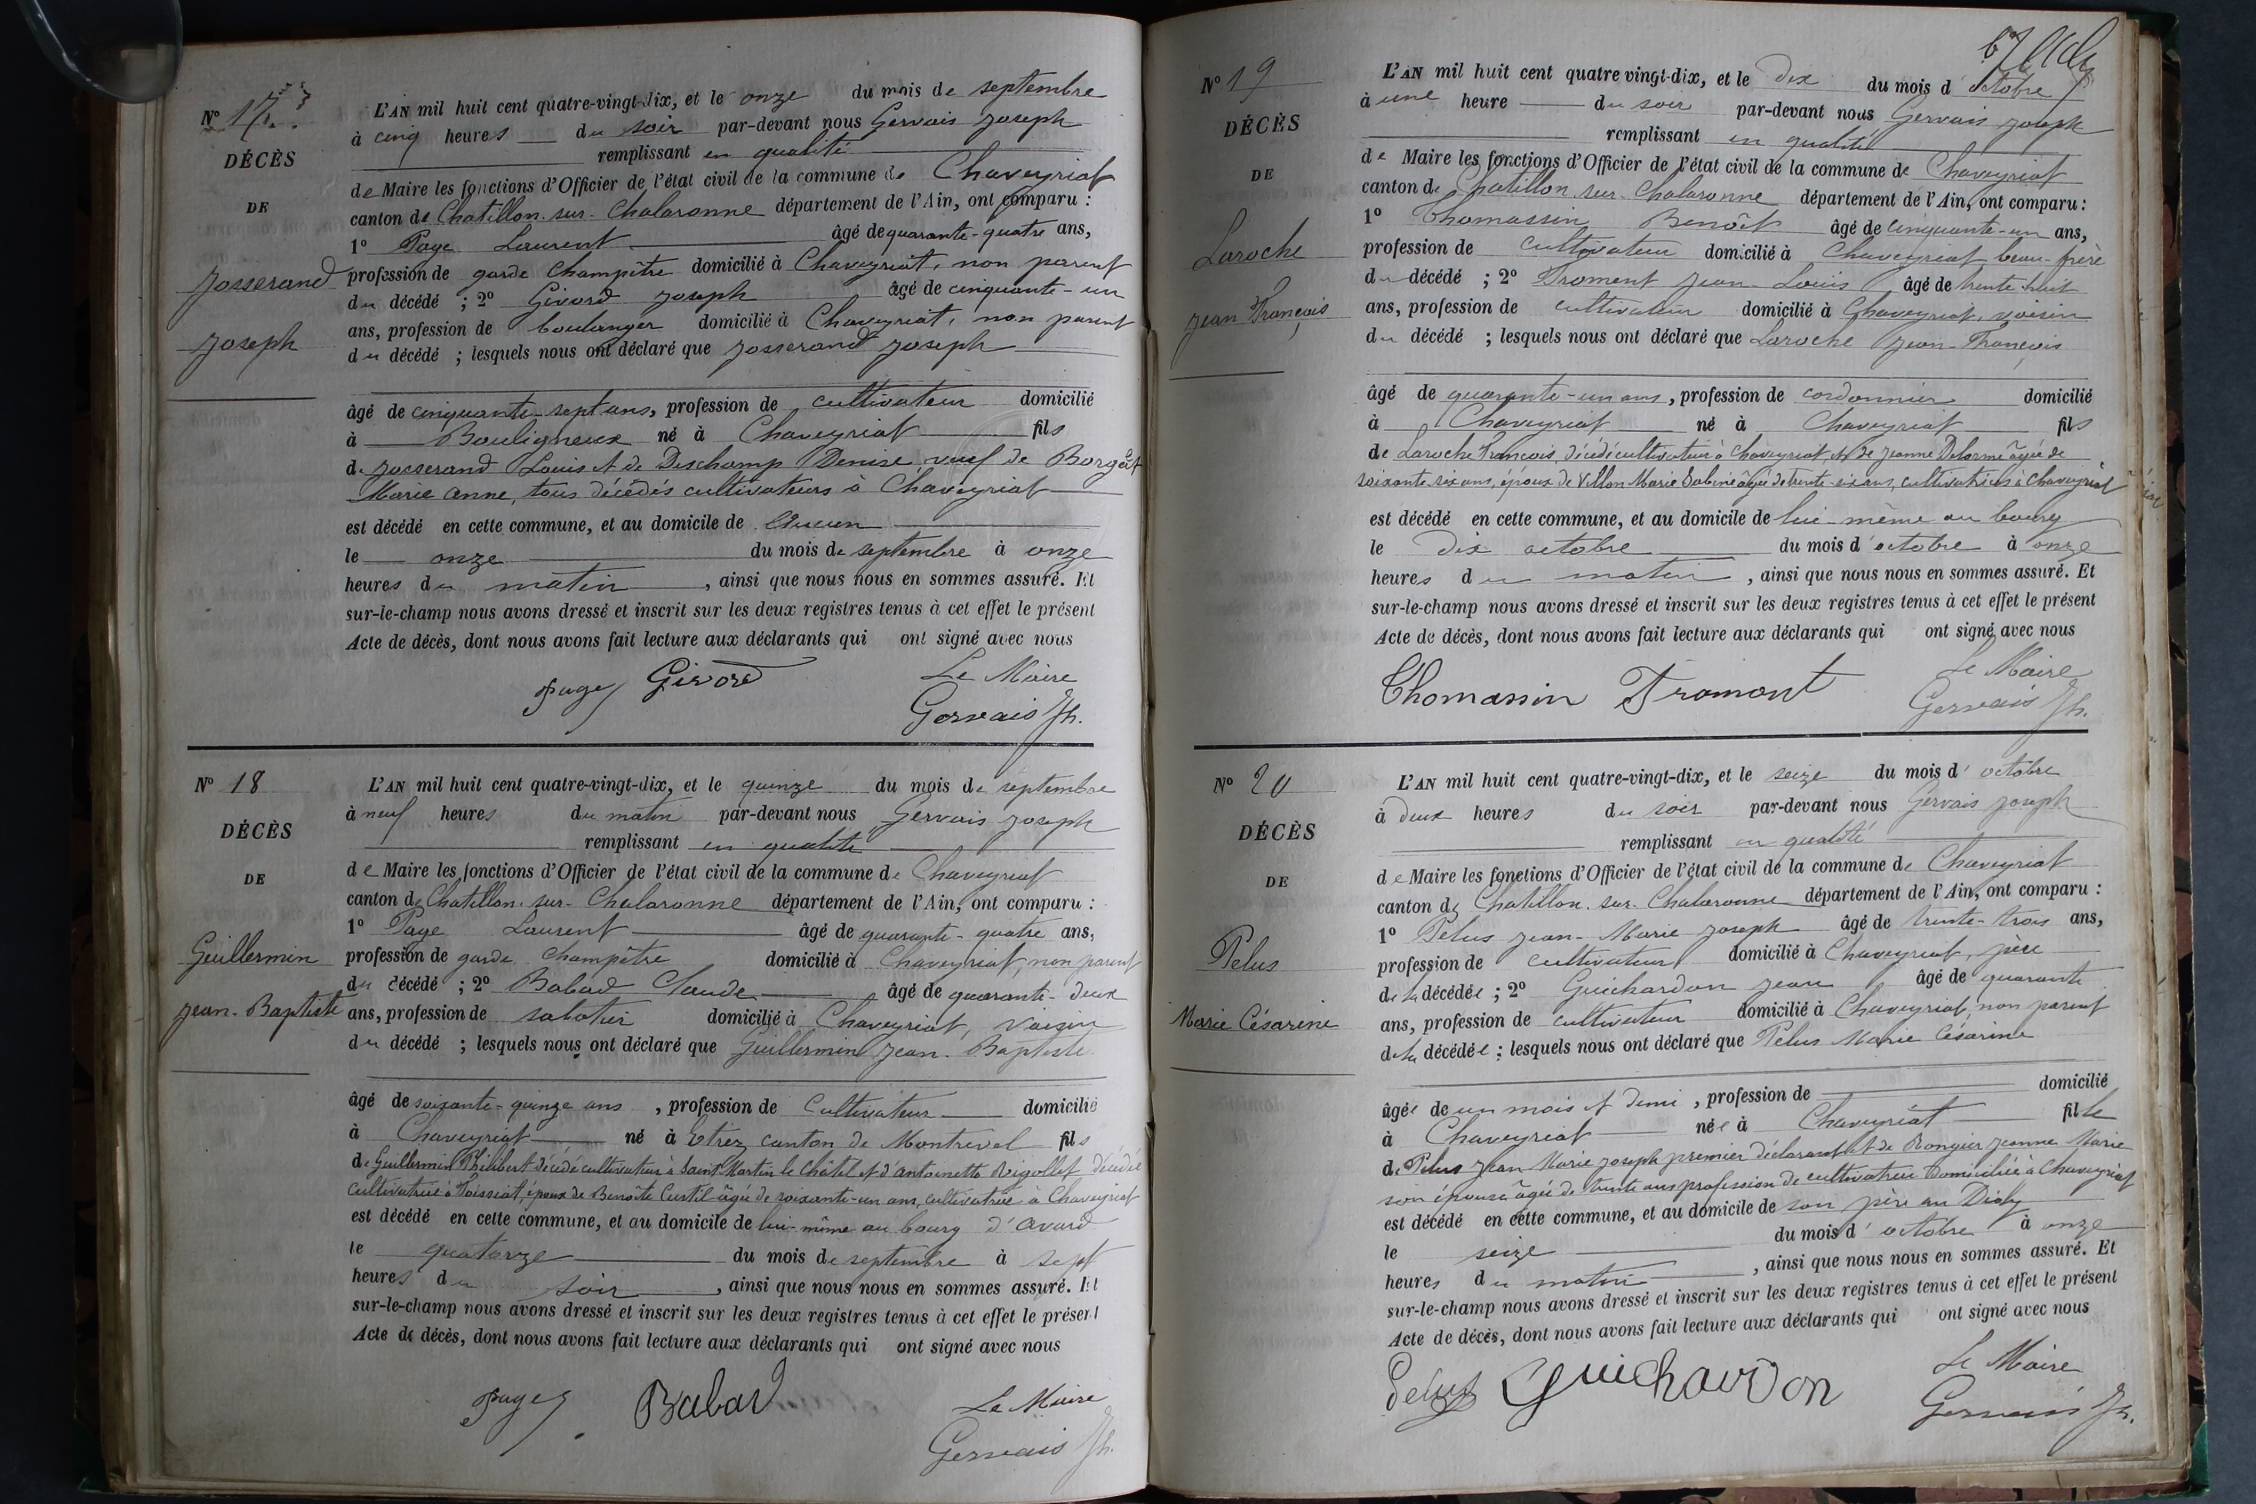 N° 17
DÉCÈS
DE
Josserand
Joseph
L'AN mil huit cent quatre-vingt-dix, et le onze du mois de septembre
à cinq heures du soir par-devant nous Gervais Joseph
remplissant en qualité
de Maire les fonctions d'Officier de l'état civil de la commune de Chaveyriat
canton de Chatillon-sur-Chalaronne département de l'Ain, ont comparu :
1° Page Laurent âgé de quarante-quatre ans,
profession de garde champêtre domicilié à Chaveyriat, non parent
du décédé ; 2° Givord Joseph âgé de cinquante-un
ans, profession de boulanger domicilié à Chaveyriat, non parent
du décédé ; lesquels nous ont déclaré que Josserand Joseph
âgé de cinquante-sept ans, profession de cultivateur domicilié
à Bouligneux né à Chaveyriat fils
de Josserand Louis et de Deschamp Denise, veuf de Borgat
Marie Anne, tous décédés cultivateurs à Chaveyriat
est décédé en cette commune, et au domicile de
le onze du mois de septembre à onze
heures du matin, ainsi que nous nous en sommes assuré. Et
sur-le-champ nous avons dressé et inscrit sur les deux registres tenus à cet effet le présent
Acte de décès, dont nous avons fait lecture aux déclarants qui ont signé avec nous
Page Givord Le Maire
Gervais Jh.
N° 18
DÉCÈS
DE
Guillermin
Jean-Baptiste
L'AN mil huit cent quatre-vingt-dix, et le quinze du mois de septembre
à neuf heures du matin par-devant nous Gervais Joseph
remplissant en qualité
de Maire les fonctions d'Officier de l'état civil de la commune de Chaveyriat
canton de Chatillon-sur-Chalaronne département de l'Ain, ont comparu :
1° Page Laurent âgé de quarante-quatre ans,
profession de garde champêtre domicilié à Chaveyriat, non parent
du décédé ; 2° Babad Claude âgé de quarante-deux
ans, profession de sabotier domicilié à Chaveyriat, voisin
du décédé ; lesquels nous ont déclaré que Guillermin Jean-Baptiste
âgé de soixante-quinze ans, profession de Cultivateur domicilié
à Chaveyriat né à Etrez canton de Montrevel fils
de Guillermin Philibert décédé cultivateur à Saint Martin le Châtel et d'Antoinette Rigollet décédée
cultivatrice à Foissiat, époux de Benoîte Curtil âgée de soixante-un ans, cultivatrice à Chaveyriat
est décédé en cette commune, et au domicile de lui-même au bourg d'avard
le quatorze du mois de septembre à sept
heures du soir, ainsi que nous nous en sommes assuré. Et
sur-le-champ nous avons dressé et inscrit sur les deux registres tenus à cet effet le présent
Acte de décès, dont nous avons fait lecture aux déclarants qui ont signé avec nous
Page Babad Le Maire
Gervais Jh.
N° 19
DÉCÈS
DE
Laroche
Jean François
L'AN mil huit cent quatre vingt-dix, et le dix du mois d'octobre
à une heure du soir par-devant nous Gervais Joseph
remplissant en qualité
de Maire les fonctions d'Officier de l'état civil de la commune de Chaveyriat
canton de Chatillon-sur-Chalaronne département de l'Ain, ont comparu :
1° Thomassin Benoît âgé de cinquante-un ans,
profession de cultivateur domicilié à Chaveyriat beau-frère
du décédé ; 2° Froment Jean-Louis âgé de trente huit
ans, profession de cultivateur domicilié à Chaveyriat, voisin
du décédé ; lesquels nous ont déclaré que Laroche Jean-François
âgé de quarante-un ans, profession de cordonnier domicilié
à Chaveyriat né à Chaveyriat fils
de Laroche François décédé cultivateur à Chaveyriat, et de Jeanne Delorme âgée de
soixante-six ans, époux de Villon Marie Sabine âgée de trente-six ans, cultivatrices à Chaveyriat
est décédé en cette commune, et au domicile de lui-même au bourg
le dix octobre du mois d'octobre à onze
heures du matin, ainsi que nous nous en sommes assuré. Et
sur-le-champ nous avons dressé et inscrit sur les deux registres tenus à cet effet le présent
Acte de décès, dont nous avons fait lecture aux déclarants qui ont signé avec nous
Thomassin Froment Le Maire
Gervais Jh.
N° 20
DÉCÈS
DE
Pelus
Marie Césarine
L'AN mil huit cent quatre-vingt-dix, et le seize du mois d'octobre
à deux heures du soir par-devant nous Gervais Joseph
remplissant en qualité
de Maire les fonctions d'Officier de l'état civil de la commune de Chaveyriat
canton de Chatillon-sur-Chalaronne département de l'Ain, ont comparu :
1° Pelus Jean-Marie Joseph âgé de trente-trois ans,
profession de cultivateur domicilié à Chaveyriat, père
de la décédée ; 2° Guichardon Jean âgé de quarante
ans, profession de cultivateur domicilié à Chaveyriat, non parent
de la décédée ; lesquels nous ont déclaré que Pelus Marie Césarine
âgée de un mois et demi, profession de domicilié
à Chaveyriat née à Chaveyriat fille
de Pelus Jean Marie Joseph premier déclarant et de Rongier Jeanne Marie
son épouse âgée de trente ans profession de cultivatrice domiciliée à Chaveyriat
est décédé en cette commune, et au domicile de son père au
le seize du mois d'octobre à onze
heures du matin, ainsi que nous nous en sommes assuré. Et
sur-le-champ nous avons dressé et inscrit sur les deux registres tenus à cet effet le présent
Acte de décès, dont nous avons fait lecture aux déclarants qui ont signé avec nous
Pelus Guichardon Le Maire
Gervais Jh.